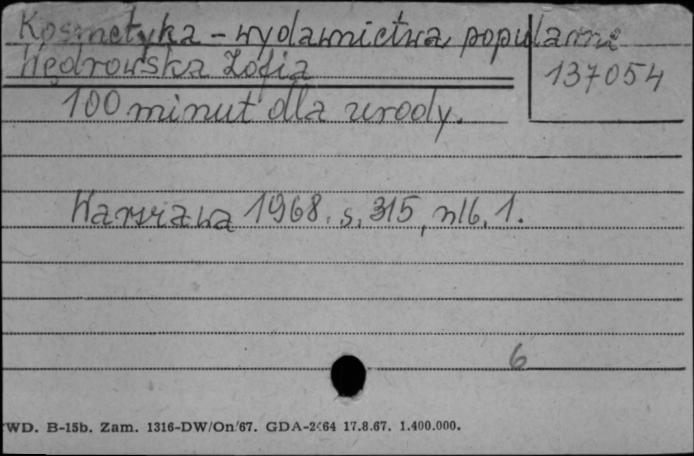 Kosmetyka - wydawnictwa popularne
Wędrowska Zofia
137054
100 minut dla urody.
Warszawa 1968. s. 315, nlb. 1.
6
WD. B-15b. Zam. 1316-DW/On/67. GDA-2464 17.8.67. 1.400.000.